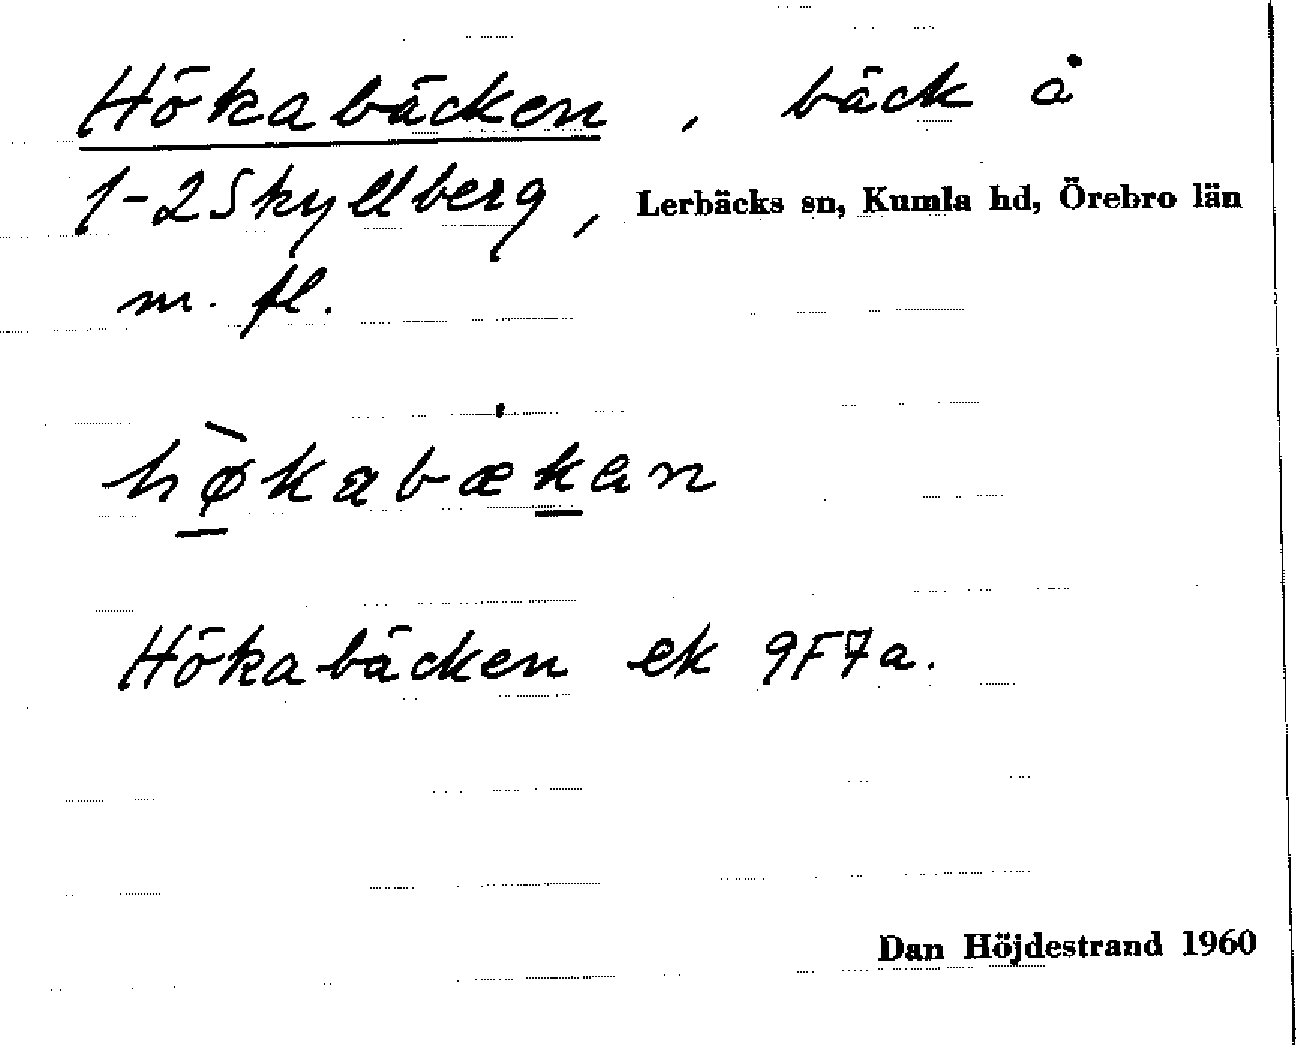 Hökabäcken, bäck å
1-2 Skyllberg, Lerbäcks sn, Kumla hd, Örebro län
m. fl.
hø̀kabækan
Hökabäcken ek 9F7a.
Dan Höjdestrand 1960